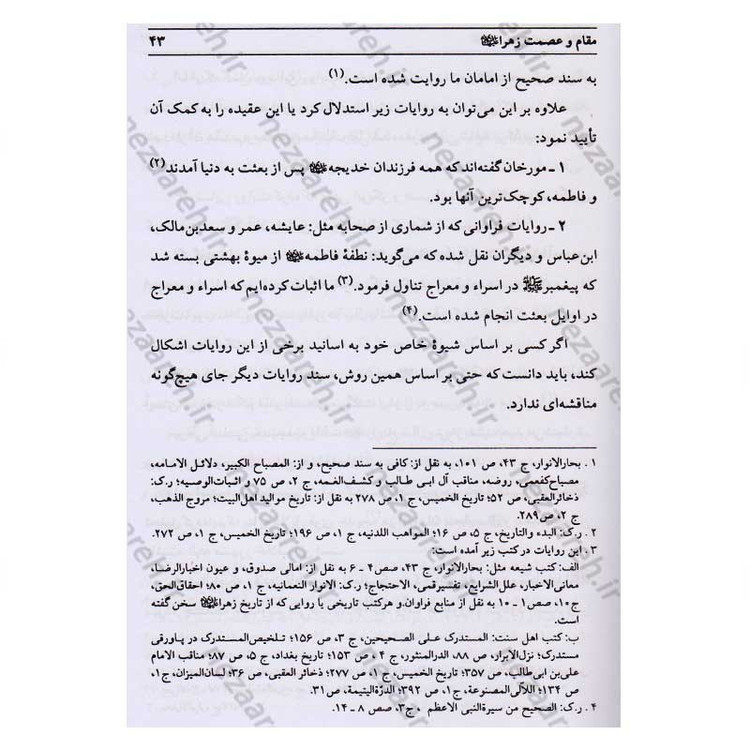 مقام و عصمت زهرا ۴۳
به سند صحیح از امامان ما روایت شده است.(۱)
علاوه بر این می‌توان به روایات زیر استدلال کرد یا این عقیده را به کمک آن
تأیید نمود:
۱ ـ مورخان گفته‌اند که همه فرزندان خدیجه پس از بعثت به دنیا آمدند(۲)
و فاطمه، کوچک‌ترین آنها بود.
۲ ـ روایات فراوانی که از شماری از صحابه مثل: عایشه، عمر و سعدبن‌مالک،
ابن‌عباس و دیگران نقل شده که می‌گوید: نطفۀ فاطمه از میوۀ بهشتی بسته شد
که پیغمبرﷺ در اسراء و معراج تناول فرمود.(۳) ما اثبات کرده‌ایم که اسراء و معراج
در اوایل بعثت انجام شده است.(۴)
اگر کسی بر اساس شیوۀ خاص خود به اسانید برخی از این روایات اشکال
کند، باید دانست که حتی بر اساس همین روش، سند روایات دیگر جای هیچ‌گونه
مناقشه‌ای ندارد.
۱ . بحارالانوار، ج ۴۳، ص ۱۰۱، به نقل از: کافی به سند صحیح، و از: المصباح الکبیر، دلائـل الامامه،
مصباح‌کفعمی، روضه، مناقب آل ابی طالب و کشف‌الغمه، ج ۲، ص ۷۵ و اثبات‌الوصیه؛ ر.ک:
ذخائرالعقبی، ص ۵۲؛ تاریخ الخمیس، ج ۱، ص ۲۷۸ به نقل از: تاریخ موالید اهل‌البیت؛ مروج الذهب،
ج ۲، ص۲۸۹.
۲ . ر.ک: البدء والتاریخ، ج ۵، ص ۱۶؛ المواهب اللدنیه، ج ۱، ص ۱۹۶؛ تاریخ الخمیس، ج ۱، ص ۲۷۲.
۳ . این روایات در کتب زیر آمده است:
الف: کتب شیعه مثل: بحارالانوار، ج ۴۳، صص۴ ـ ۶ به نقل از: امالی صدوق، و عیون اخبارالرضا،
معانی‌الاخبار، علل‌الشرایع، تفسیرقمی، الاحتجاج؛ ر.ک: الانوار النعمانیه، ج ۱، ص ۸۰؛ احقاق‌الحق،
ج۱۰، صص۱ ـ ۱۰ به نقل از منابع فراوان.و هرکتب تاریخی یا روایی که از تاریخ زهرا سخن گفته
است.
ب: کتب اهل سنت: المستدرک علـی الصحیحین، ج ۳، ص ۱۵۶؛ تـلخیص‌المستدرک در پـاورقی
مستدرک؛ نزل‌الابرار، ص ۸۸، الدرالمنثور، ج ۴ ، ص ۱۵۳؛ تاریخ بغداد، ج ۵، ص ۸۷؛ مناقب الامام
علی‌بن ابی‌طالب، ص ۳۵۷؛ تاریخ الخمیس، ج ۱، ص ۲۷۷؛ ذخائر العقبی، ص ۳۶؛ لسان‌المیزان، ج۱،
ص ۱۳۴؛ اللآلی‌المصنوعة، ج۱، ص ۳۹۲؛ الدرّة‌الیتیمة، ص۳۱.
۴ . ر.ک: الصحیح من سیرةالنبی الاعظم ، ج۳، صص ۸ ـ ۱۴.
nezaareh.ir